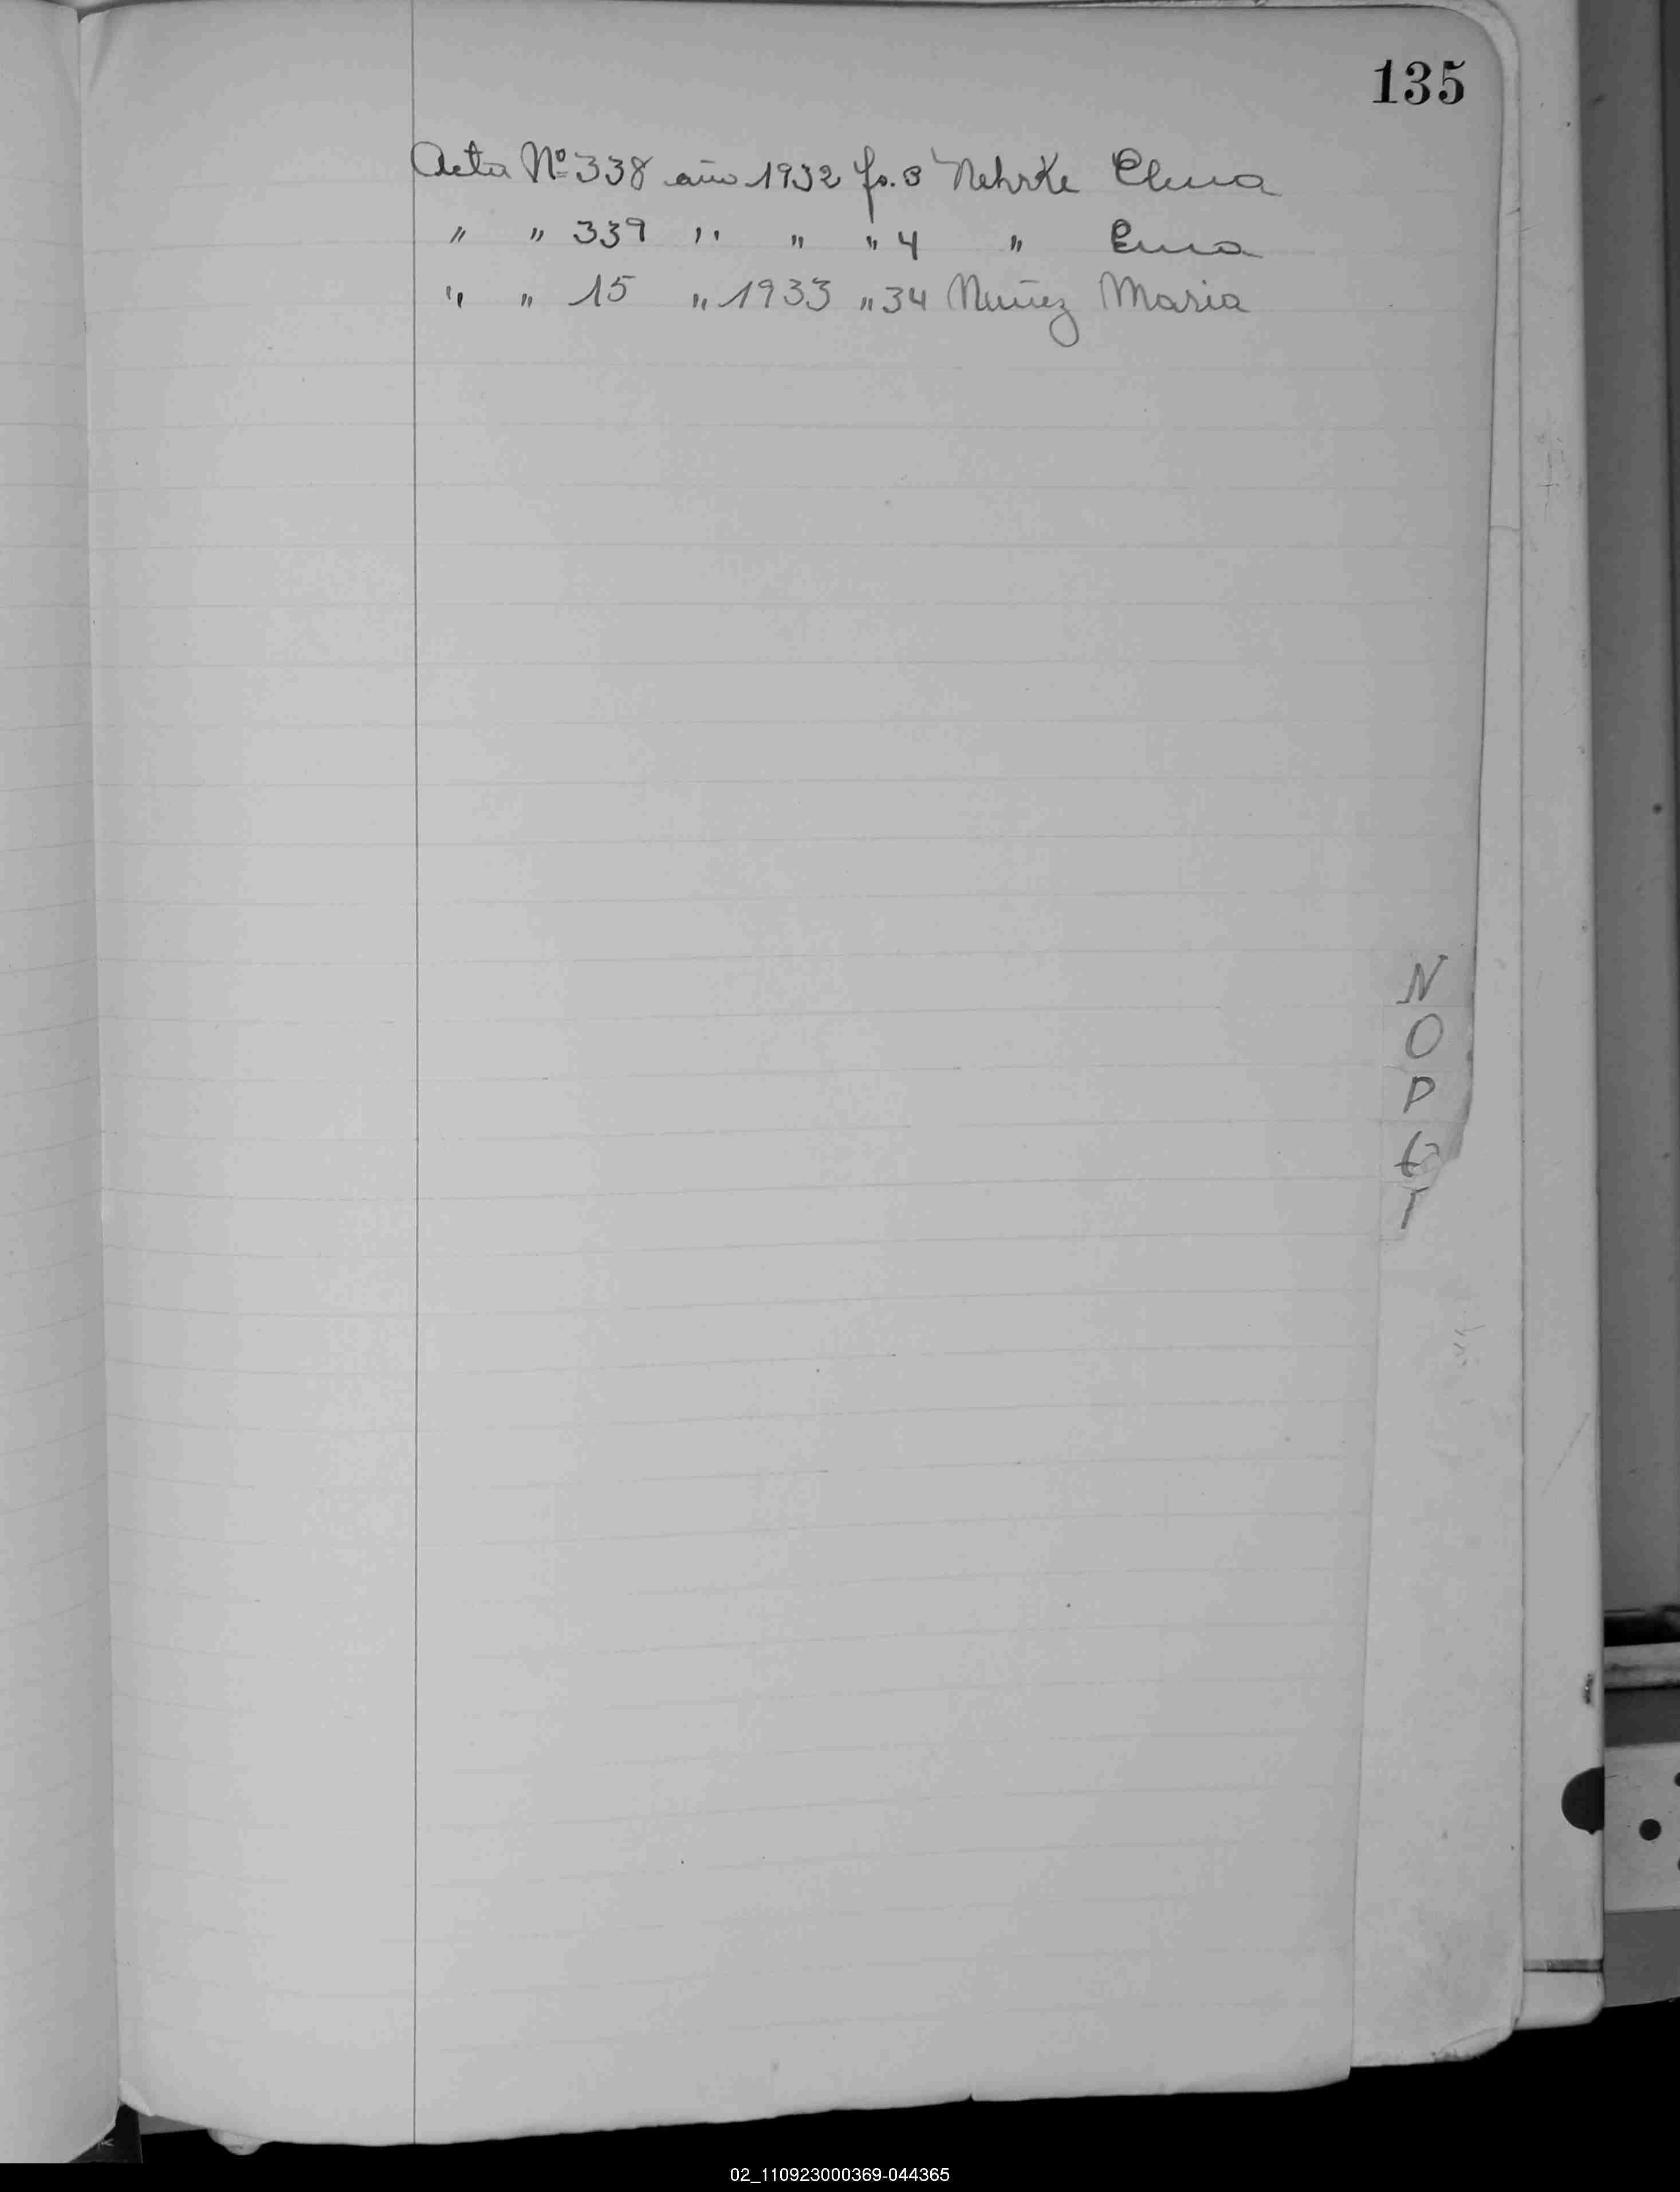 135
Acta Nº 338 año 1932 fo. 3 Nehrke Elena
" " 339 " " " 4 " Ema
" " 15 " 1933 " 34 Nuñez Maria
N
O
P
T
02_110923000369-044365